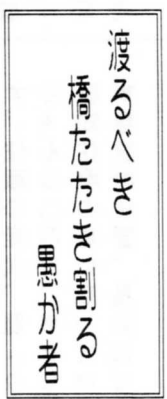 渡るべき
橋たたき割る
愚か者